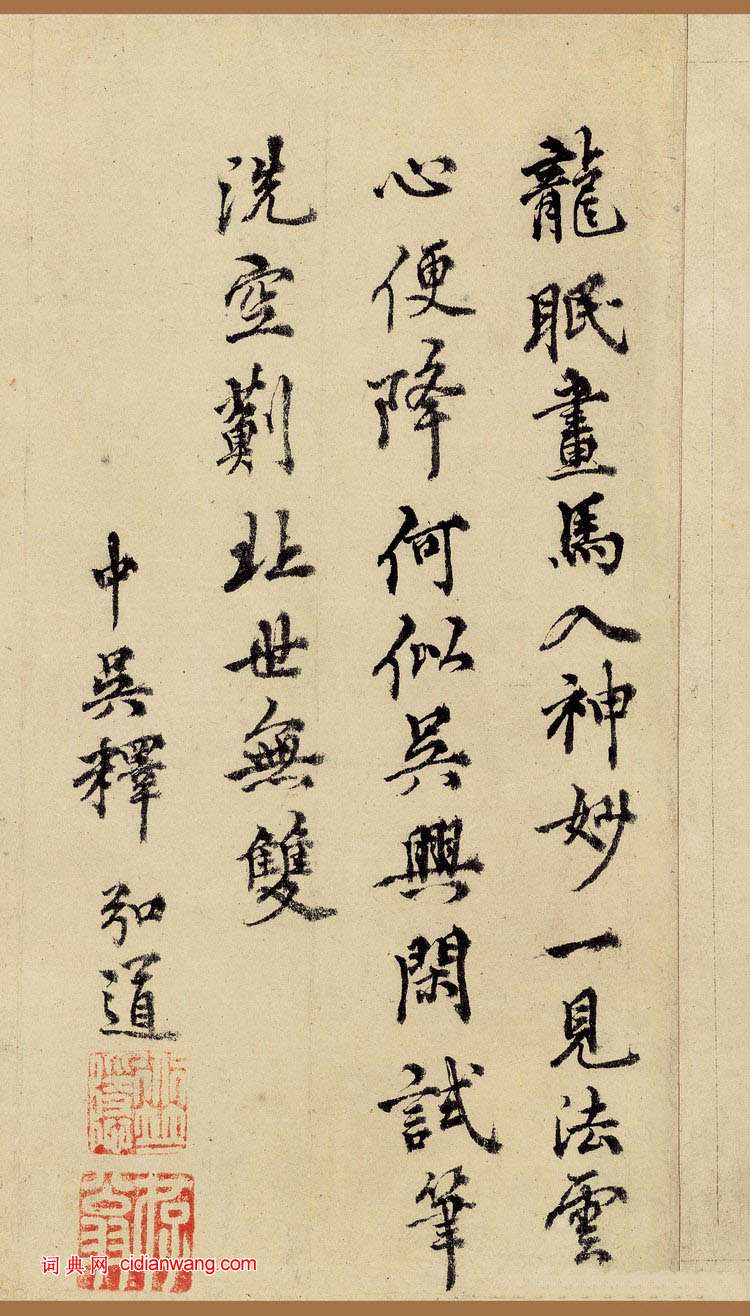 龍眠畫馬入神妙一見法雲
心便降何似吳興閑試筆
洗空薊北世無雙
中吳釋弘道
词典网 cidianwang.com